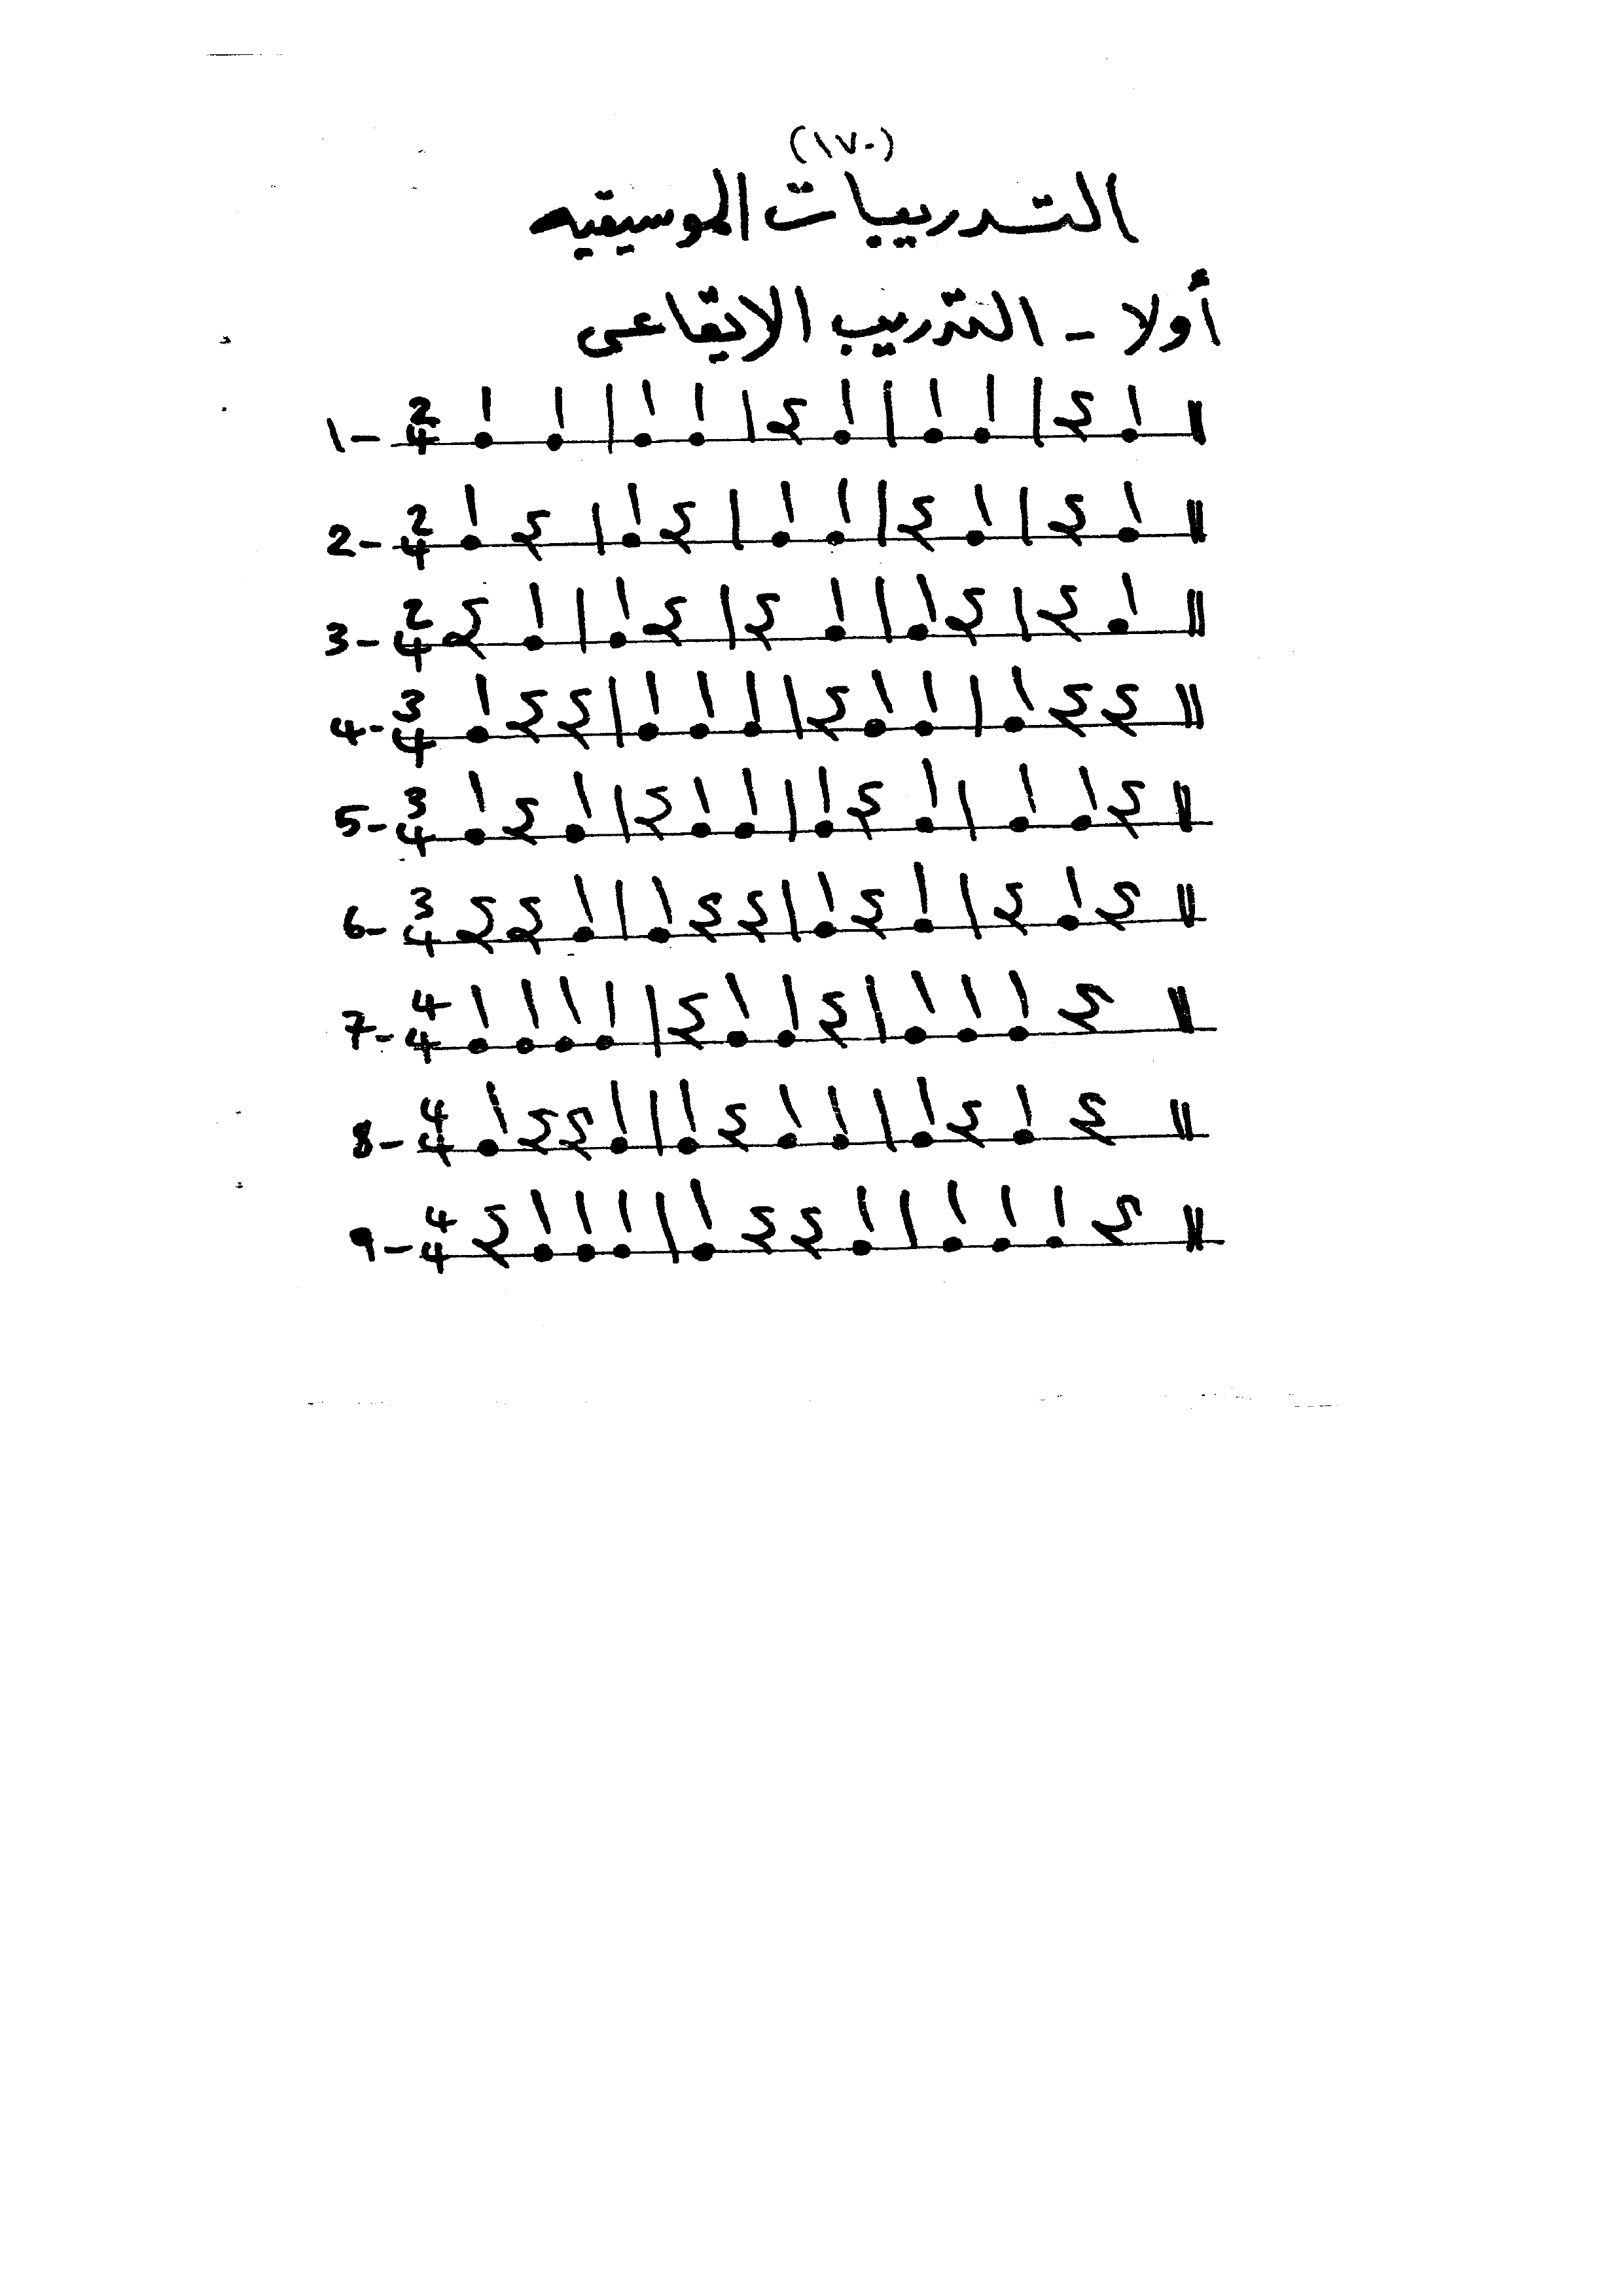 (١٧٠)
التدريبات الموسيقيه
أولا - التدريب الايقاعى
1- 2/4
2- 2/4
3- 2/4
4- 3/4
5- 3/4
6- 3/4
7- 4/4
8- 4/4
9- 4/4